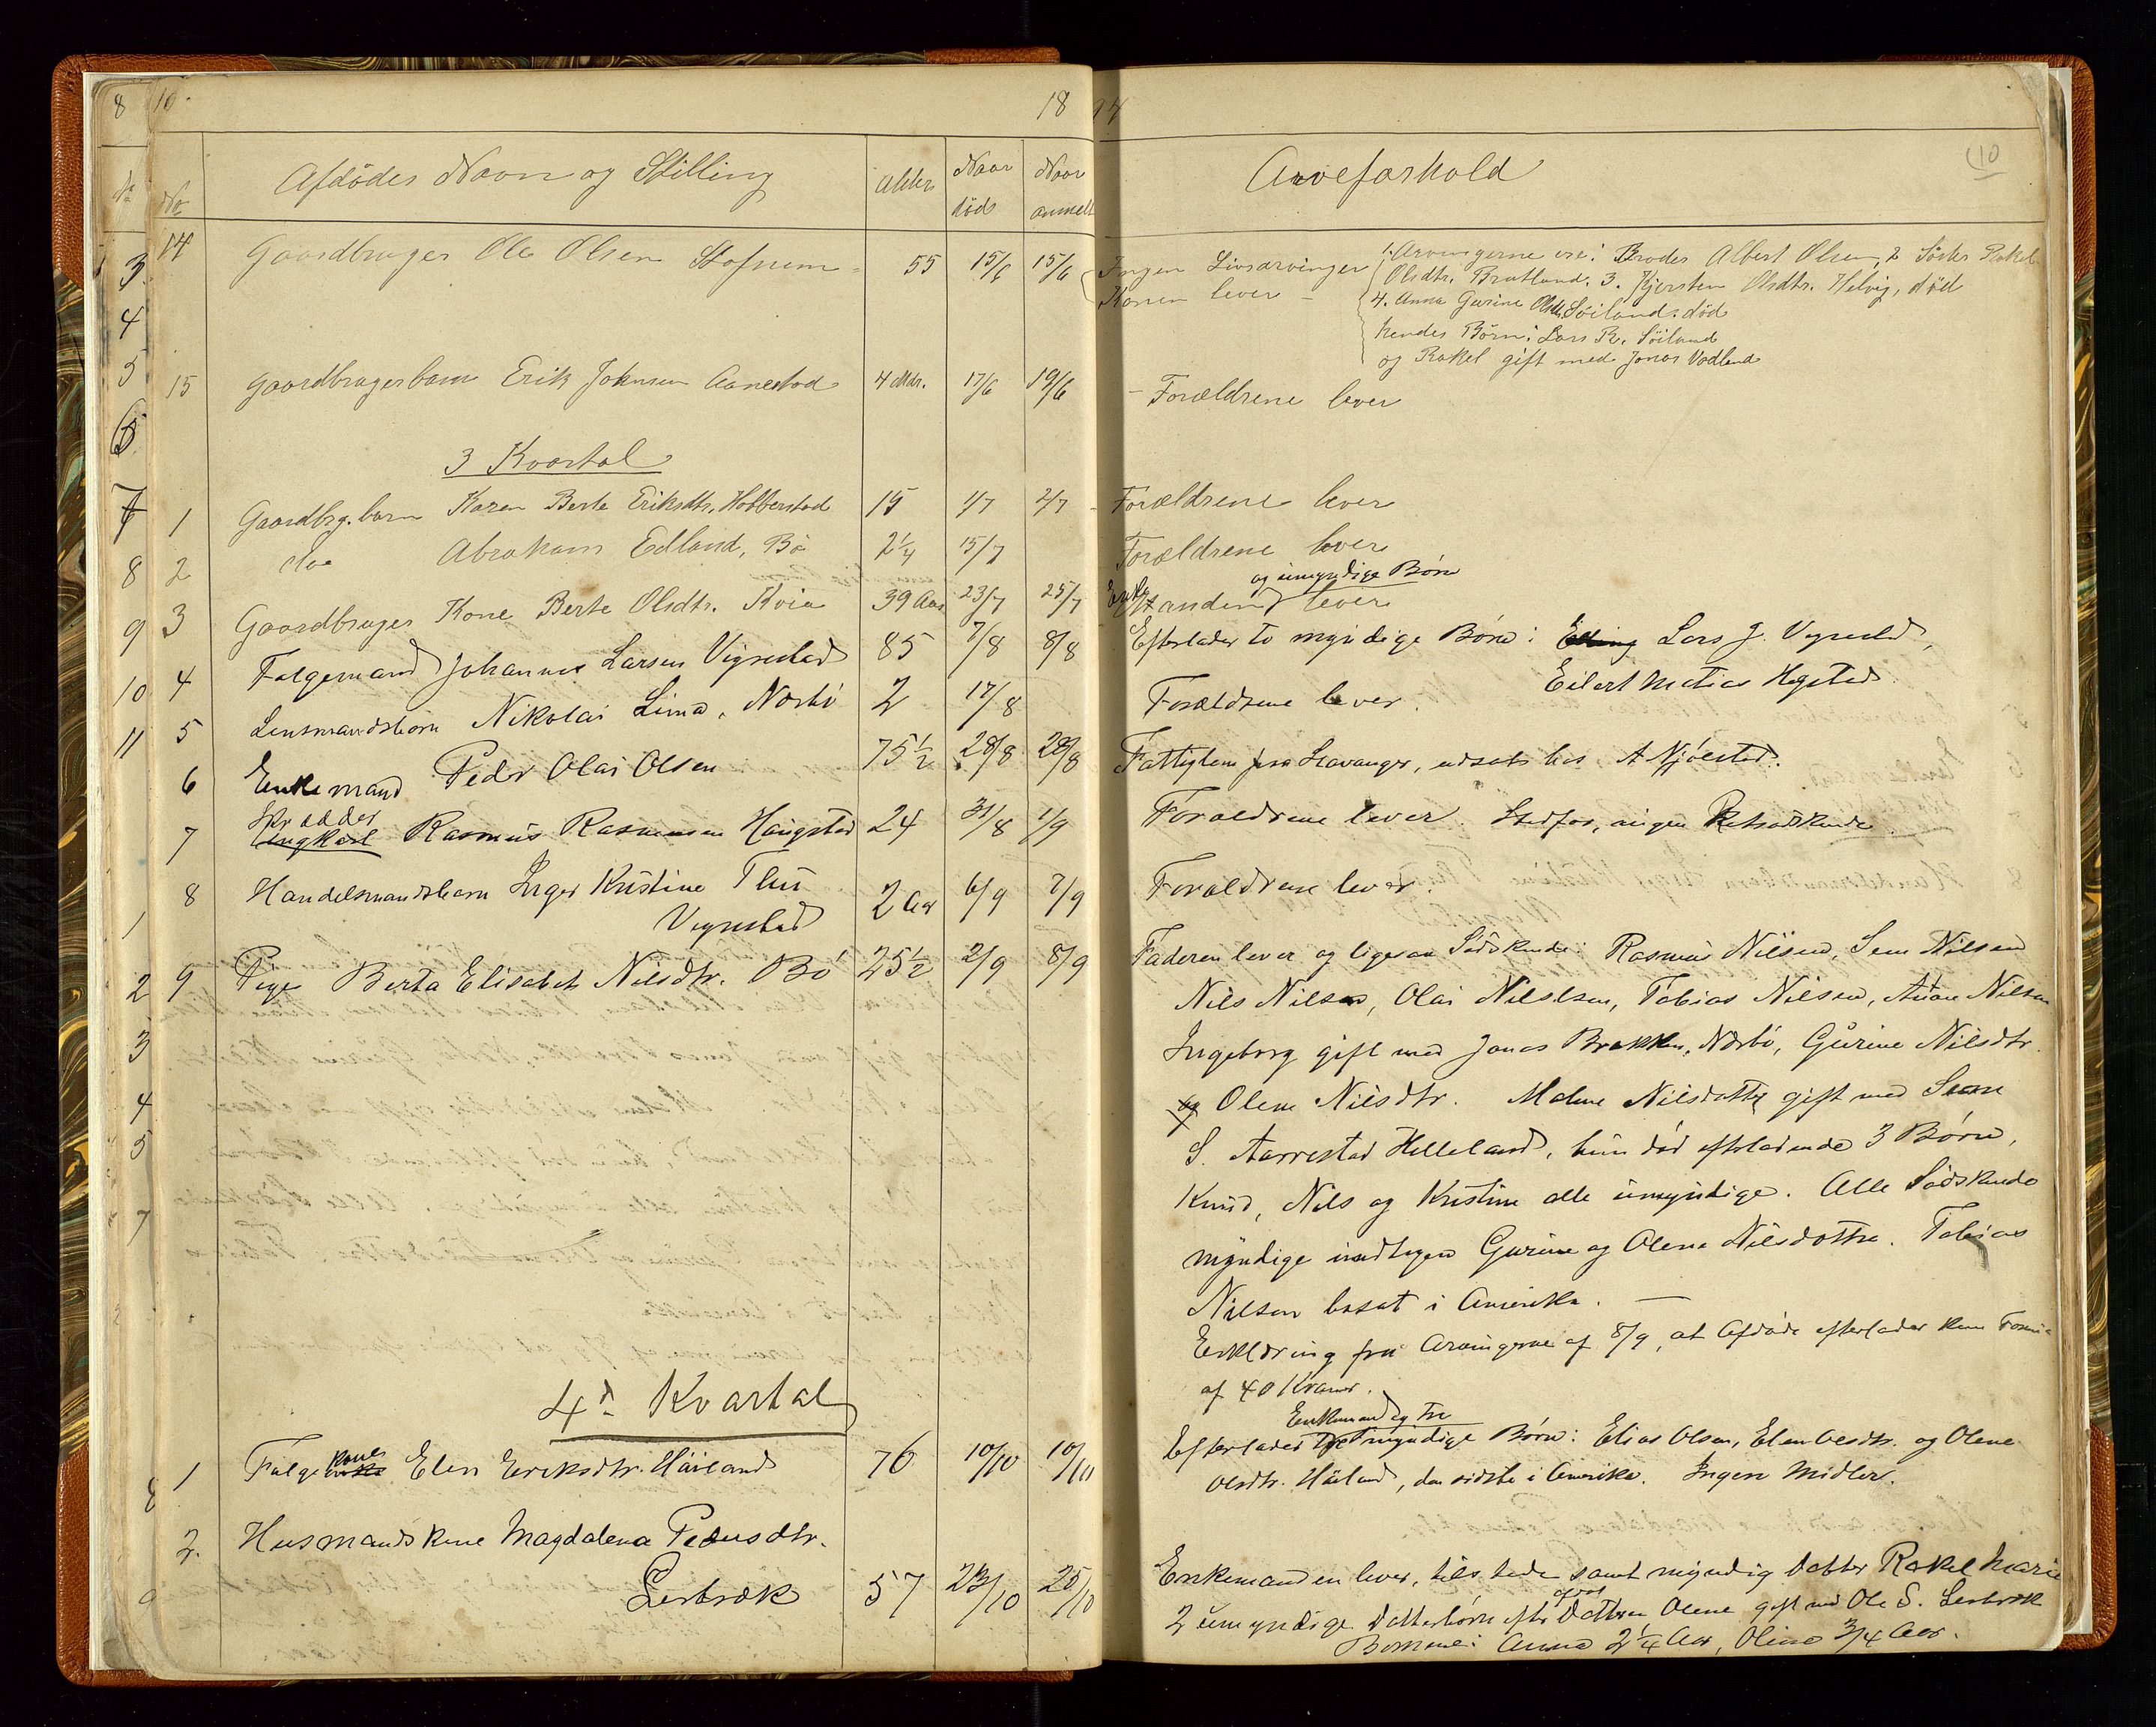 8 10. 1894
No Afdødes Navn og Stilling Alder Naar død Naar anmeldt Arveforhold (10
14 Gaardbruger Ole Olsen Stofnum 55 15/6 15/6 Ingen Livsarvinger
Konen lever –
1. Arvingerne ere: Broder Albert Olsen, 2 Søster Rakel
Olsdtr. Bratland. 3. Kjersten Olsdtr. Helvig, død
4. Anna Gurine Olsdtr. Söiland. död
hendes Børn: Lars R. Söiland
og Rakel gift med Jonas Vadland
15 Gaardbrugerbarn Erik Johnsen Aanestad 4 Mdr. 17/6 19/6 – Forældrene lever
3 Kvartal
1 Gaardbrg. barn Karen Berte Eriksdtr. Hobberstad 15 1/7 2/7 – Forældrene lever
2 do Abraham Edland, Bø 2 1/4 15/7 Forældrene lever
3 Gaardbruger Kone Berte Olsdtr. Kvia 39 Aar 23/7 25/7 Enkemanden og umyndige Børn lever
4 Følgemand Johannes Larsen Vigrestad 85 7/8 8/8 Efterlader to myndige Børn: Lars J. Vigrestad,
Eilert Matias Hegstad.
5 Lensmandsbarn Nikolai Lima, Nærbø 2 17/8 Forældrene lever.
6 Enkemand Peder Olai Olsen 75 1/2 28/8 28/8 Fattiglem fra Stavanger, udsat hos A Njölstad.
7 Skrædder Ungkarl Rasmus Rasmussen Haugstad 24 31/8 1/9 Forældrene lever. Stedfar, ingen
8 Handelsmandsbarn Inger Kristine Thu
Vigrestad 2 Aar 6/9 7/9 Forældrene lever.
9 Pige Berta Elisabet Nilsdtr. Bø 25 1/2 2/9 8/9 Faderen lever og ligesaa Sødskende: Rasmus Nilsen, Sem Nilsen
Nils Nilsen, Olai Nilsen, Tobias Nilsen, Nilsen
Ingeborg gift med Jonas Brakken, Nærbø, Gurine Nilsdtr.
og Olene Nilsdtr. Malene Nilsdatter gift med Sem
S. Aarrestad Helleland, hun død efterladende 3 Børn,
Knud, Nils og Kristine alle umyndige. Alle Sødskende
myndige undtagen Gurine og Olene Nilsdøttre. Tobias
Nilsen bosat i Amerika. —
Erklæring fra Arvingerne af 8/9, at Afdøde efterlader kun Formue
af 40 Kroner.
4de Kvartal
1 Følgekone Elen Eriksdtr. Håiland 76 10/10 10/10 Efterlader Enkemand og tre myndige Børn: Elias Olsen, Elen Olsdtr. og Olene
Olsdtr. Håiland, den sidste i Amerika. Ingen Midler.
2. Husmandskone Magdalena Pedersdtr.
Lerbræk 57 23/10 25/10 Enkemanden lever, tilstede samt myndig Datter Rakel Marie
2 umyndige Datterbørn efter afdød Datteren Olene gift med Ole S. Lerbræk
Børnene: Anna 2 1/4 Aar, Oline 3/4 Aar.